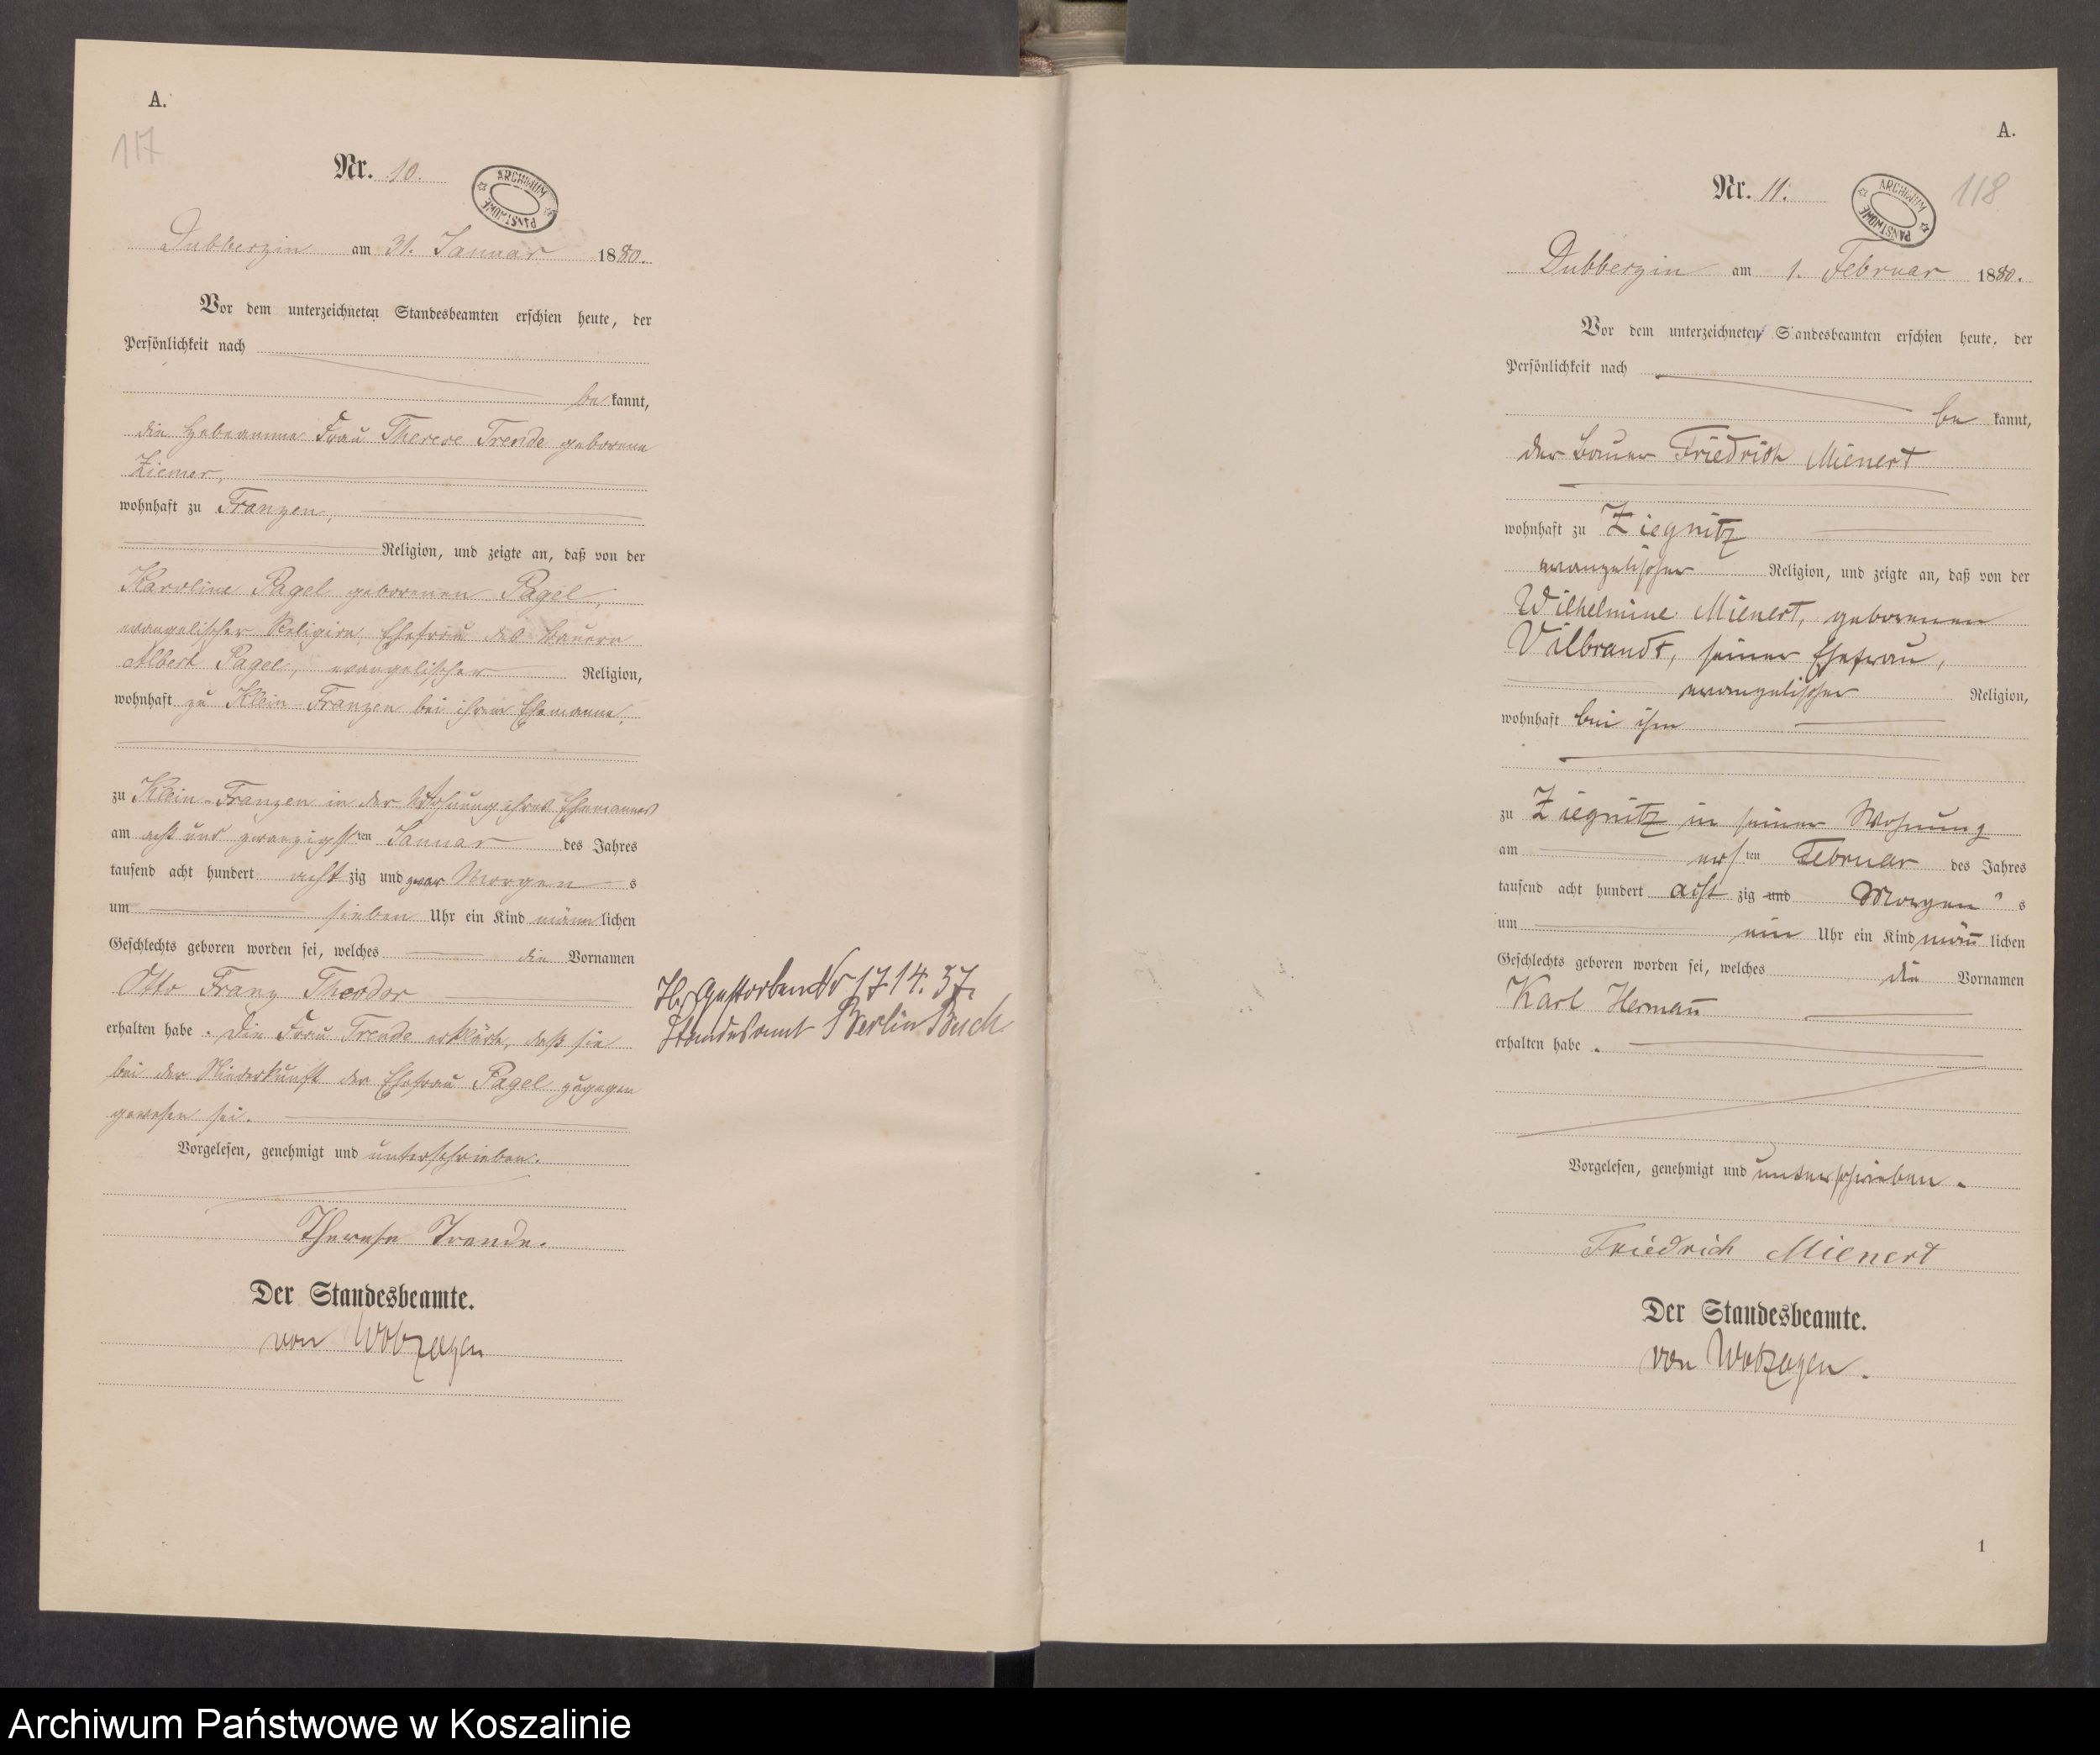 A.
117
Nr. 10.
ARCHIWUM PAŃSTWOWE
Dubberzin am 31. Januar 1880.
Vor dem unterzeichneten Standesbeamten erschien heute, der
Persönlichkeit nach
be kannt,
die Hebeamme Frau Therese Trende geborene
Ziemer,
wohnhaft zu Franzen,
Religion, und zeigte an, daß von der
Karoline Pagel geborenen Pagel,
evangelischer Religion, Ehefrau des Bauern
Albert Pagel, evangelischer Religion,
wohnhaft zu Klein-Franzen bei ihrem Ehemanne,
zu Klein-Franzen in der Wohnung ihres Ehemannes
am acht und zwanzigsten Januar des Jahres
tausend acht hundert acht zig und zwar Morgen s
um sieben Uhr ein Kind männlichen
Geschlechts geboren worden sei, welches die Vornamen
Otto Franz Theodor
erhalten habe. Die Frau Trende erklärte, daß sie
bei der Niederkunft der Ehefrau Pagel zugegen
gewesen sei.
Vorgelesen, genehmigt und unterschrieben.
Therese Trende.
Der Standesbeamte.
von Wobzagen
Gestorben Nr 1714. 37.
Standesamt Berlin Buch
A.
Nr. 11.
ARCHIWUM PAŃSTWOWE
118
Dubberzin am 1. Februar 1880.
Vor dem unterzeichneten Standesbeamten erschien heute, der
Persönlichkeit nach
be kannt,
der Bauer Friedrich Mienert
wohnhaft zu Ziegnitz
evangelischer Religion, und zeigte an, daß von der
Wilhelmine Mienert, geborenen
Vilbrandt, seiner Ehefrau,
evangelischer Religion,
wohnhaft bei ihm
zu Ziegnitz in seiner Wohnung
am ersten Februar des Jahres
tausend acht hundert acht zig und Morgen s
um ein Uhr ein Kind mān̄lichen
Geschlechts geboren worden sei, welches die Vornamen
Karl Herman̄
erhalten habe.
Vorgelesen, genehmigt und unterschrieben.
Friedrich Mienert
Der Standesbeamte.
von Wobzagen.
1
Archiwum Państwowe w Koszalinie